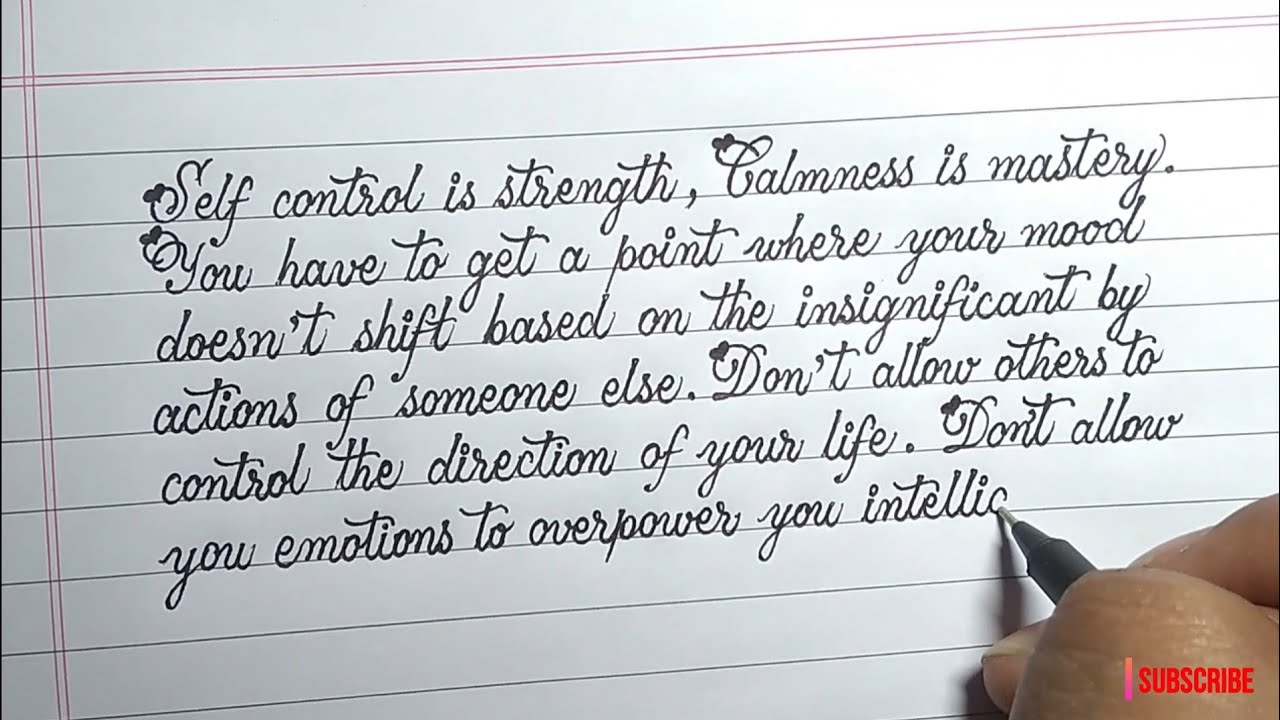 Self control is strength, Calmness is mastery.
You have to get a point where your mood
doesn't shift based on the insignificant by
actions of someone else. Don't allow others to
control the direction of your life. Don't allow
you emotions to overpower you intellic
SUBSCRIBE